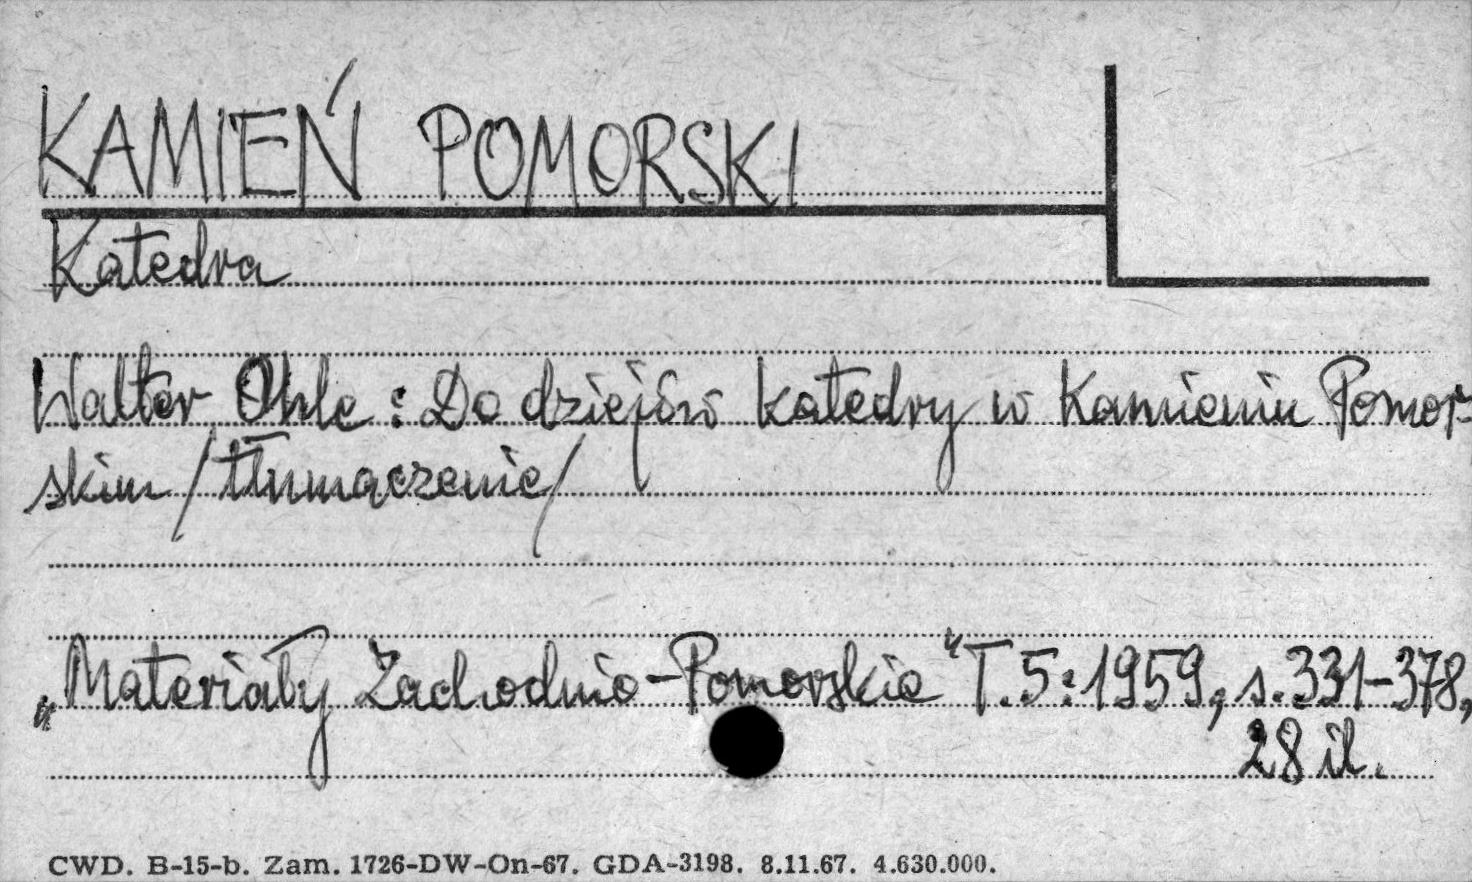 KAMIEŃ POMORSKI
Katedra
Walter Ohle: Do dziejów katedry w Kamieniu Pomor-
skim /tłumaczenie/
„Materiały Zachodnio-Pomorskie" T.5:1959, s.331-378,
28 il.
CWD. B-15-b. Zam. 1726-DW-On-67. GDA-3198. 8.11.67. 4.630.000.